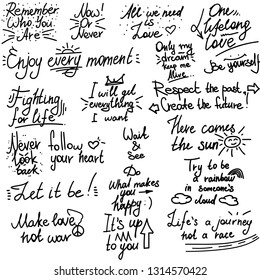 Remember
Who You
Are
Now!
Or
Never
All we need
is Love
One
Lifelong
Love
Only my
dream
keep me
Alive
Be yourself
Enjoy every moment
Fighting
for life
I will get
everything
I want
Respect the past,
Create the future!
Never
Look
back
follow
your heart
Wait
&
See
Here comes
the sun
Let it be!
Do
What makes
you
happy:)
Try to be
a rainbow
in someone's
cloud
Make love
not war
It's up
to you
Life's a journey
not a race
shutterstock.com · 1314570422